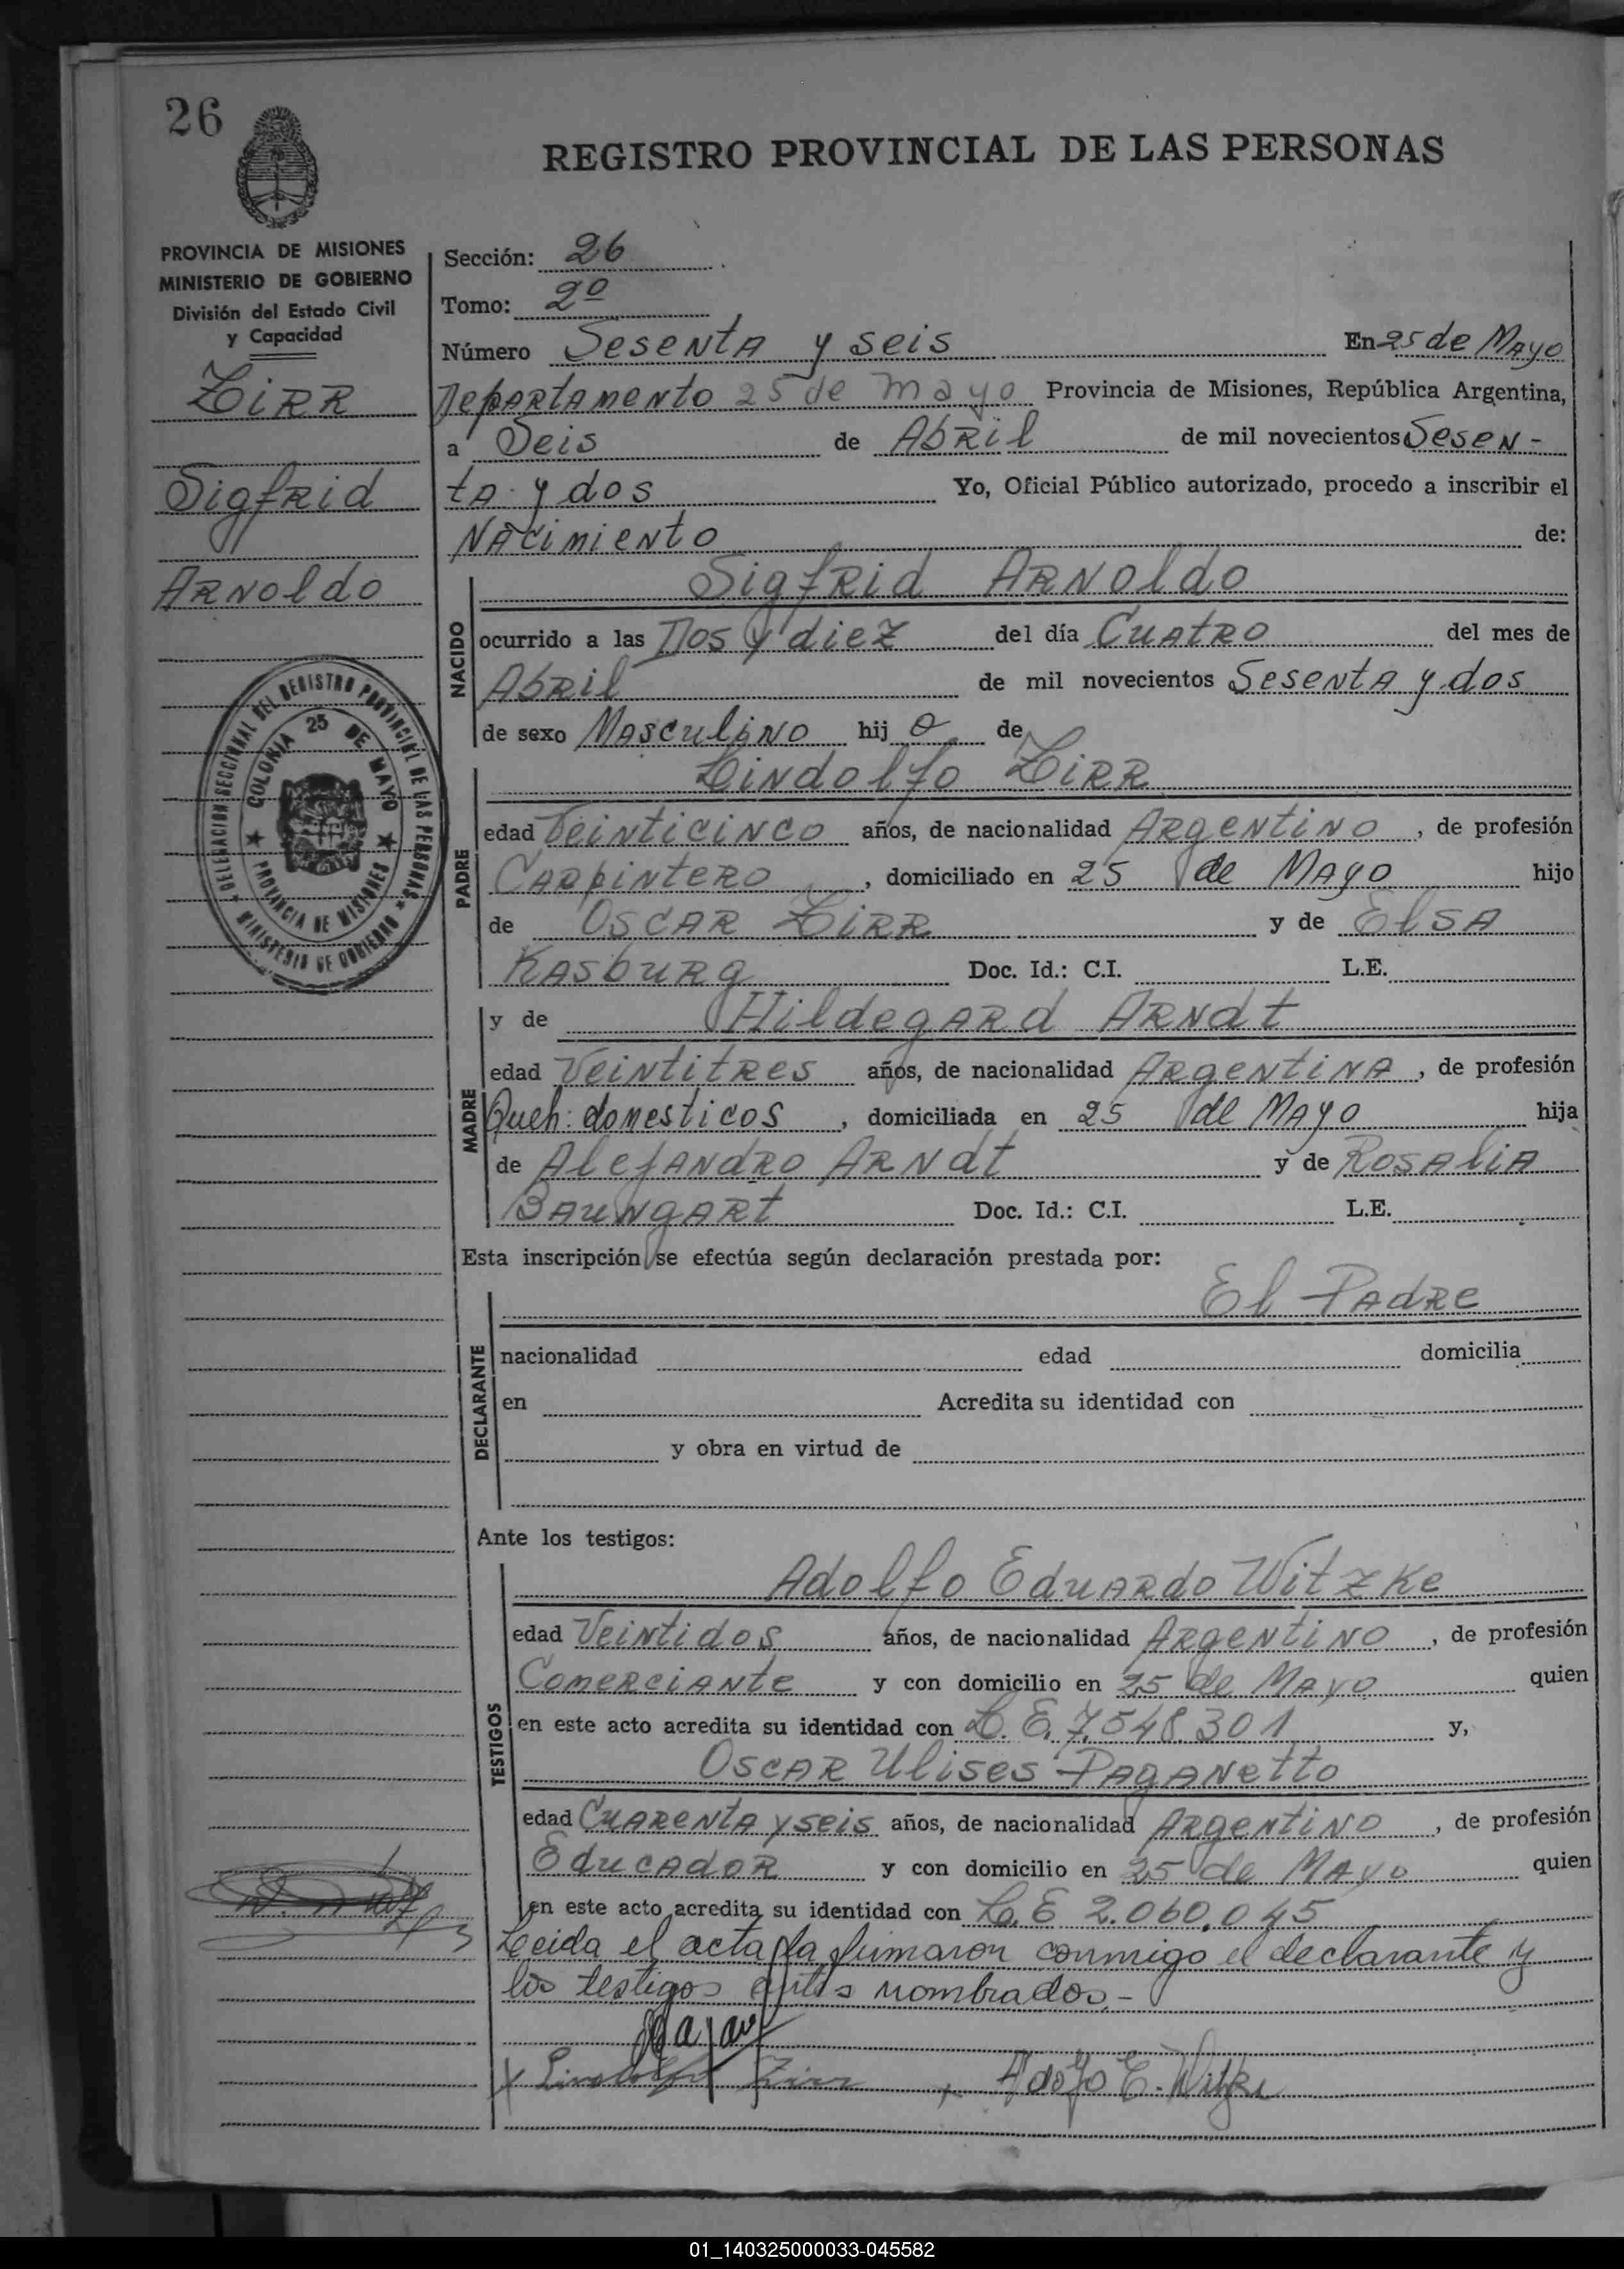 26
REGISTRO PROVINCIAL DE LAS PERSONAS
PROVINCIA DE MISIONES
MINISTERIO DE GOBIERNO
División del Estado Civil
y Capacidad
Zirr
Sigfrid
Arnoldo
DELEGACION SECCIONAL DEL REGISTRO PROVINCIAL DE LAS PERSONAS
MINISTERIO DE GOBIERNO
COLONIA 25 DE MAYO
PROVINCIA DE MISIONES
Sección: 26
Tomo: 2º
Número Sesenta y seis En 25 de Mayo
Departamento 25 de mayo Provincia de Misiones, República Argentina,
a Seis de Abril de mil novecientos Sesen-
ta y dos Yo, Oficial Público autorizado, procedo a inscribir el
Nacimiento de:
NACIDO
Sigfrid Arnoldo
ocurrido a las Dos y diez del día Cuatro del mes de
Abril de mil novecientos Sesenta y dos
de sexo Masculino hij o de
PADRE
Lindolfo Zirr
edad Veinticinco años, de nacionalidad Argentino, de profesión
Carpintero, domiciliado en 25 de Mayo hijo
de Oscar Zirr y de Elsa
Kasburg Doc. Id.: C.I. L.E.
MADRE
y de Hildegard Arndt
edad Veintitres años, de nacionalidad Argentina, de profesión
Queh: domesticos, domiciliada en 25 de Mayo hija
de Alejandro Arndt y de Rosalia
Baungart Doc. Id.: C.I. L.E.
Esta inscripción se efectúa según declaración prestada por:
DECLARANTE
El Padre
nacionalidad edad domicilia
en Acredita su identidad con
y obra en virtud de
Ante los testigos:
TESTIGOS
Adolfo Eduardo Witzke
edad Veintidos años, de nacionalidad Argentino, de profesión
Comerciante y con domicilio en 25 de Mayo quien
en este acto acredita su identidad con L.E. 7.548.301 y,
Oscar Ulises Paganetto
edad Cuarenta y seis años, de nacionalidad Argentino, de profesión
Educador y con domicilio en 25 de Mayo quien
en este acto acredita su identidad con L.E 2.060.045
Leida el acta la firmaron conmigo el declarante y
los testigos antes nombrados.-
x Lindolfo Zirr x Adolfo E. Witzke
01_140325000033-045582